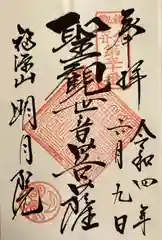 奉拝
令和四年
六月九日
聖観世音菩薩
福源山
明月院